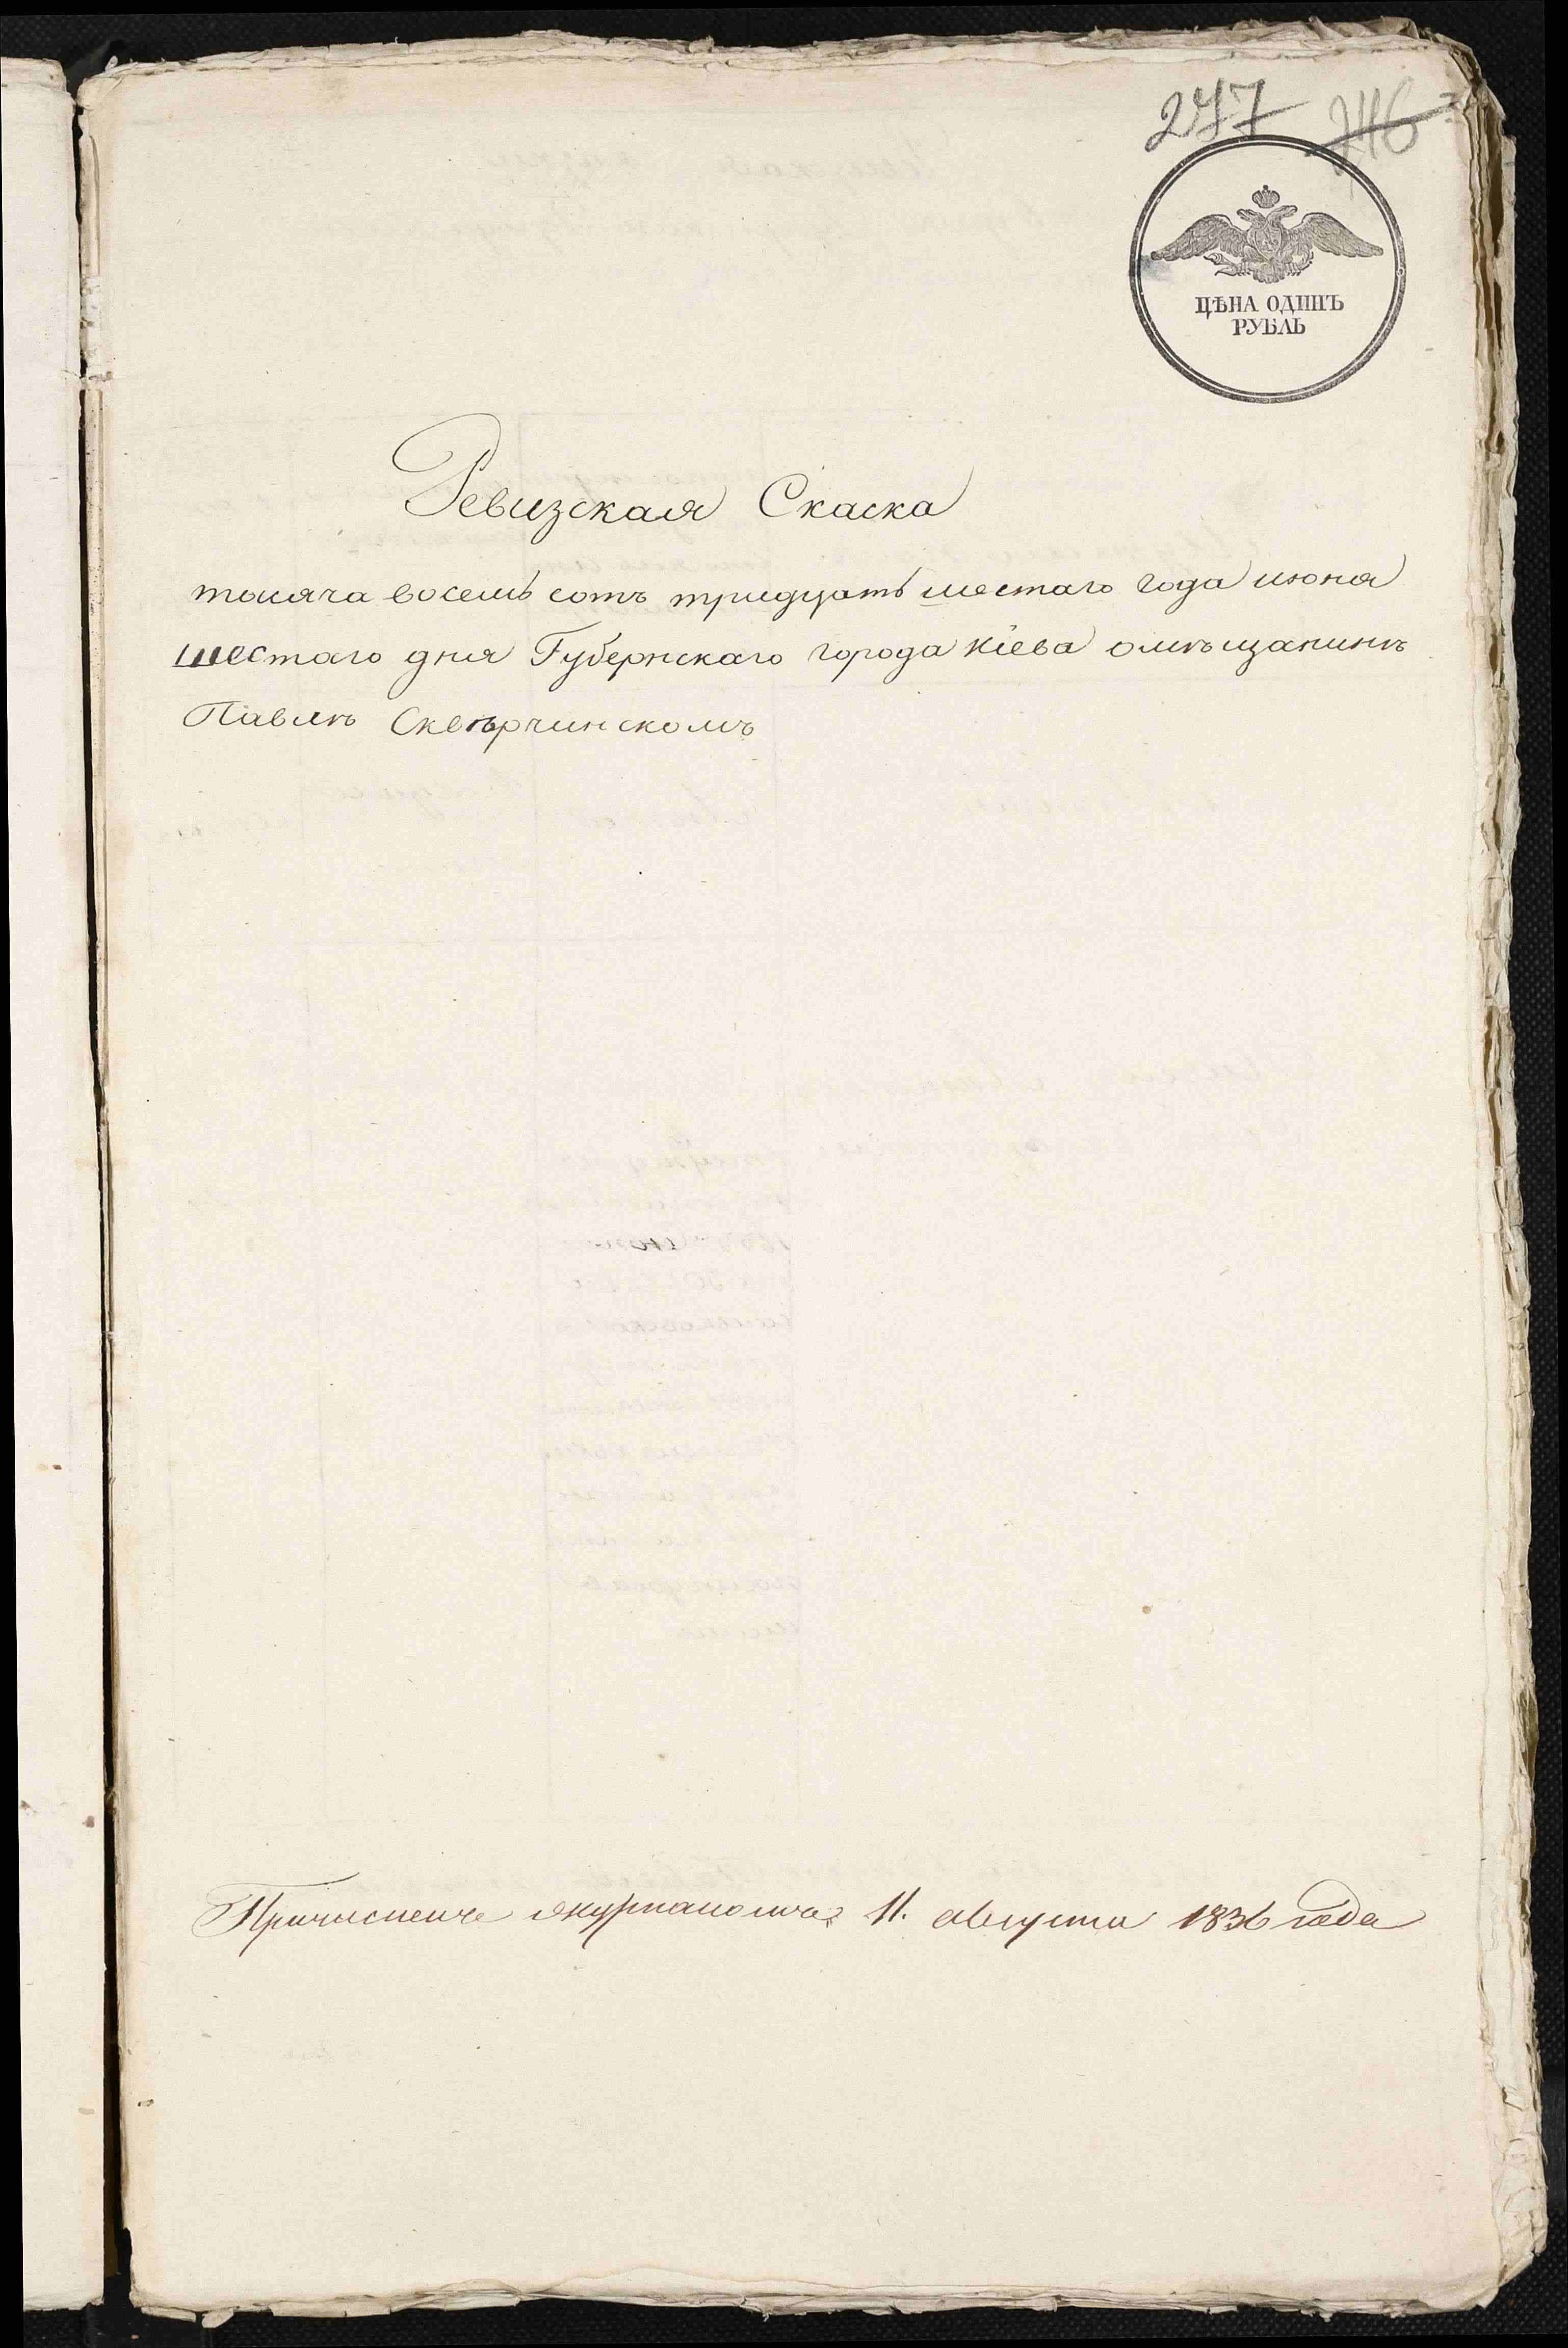 277 246
ЦѢНА ОДИНЪ
РУБЛЬ
Ревизская Скаска
тысяча восемь сотъ тридцать шестаго года июня
шестаго дня Губернскаго города Кіева омѣщанинѣ
Павлѣ Сквѣрчинскомъ
11. августа 1836 года